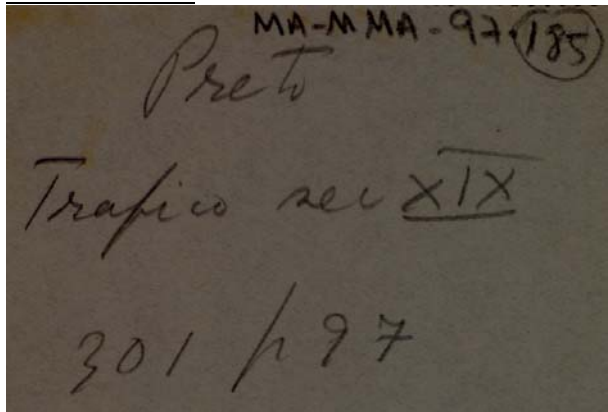 MA-MMA-97-185
Preto
Trafico sec XIX
301 p 97